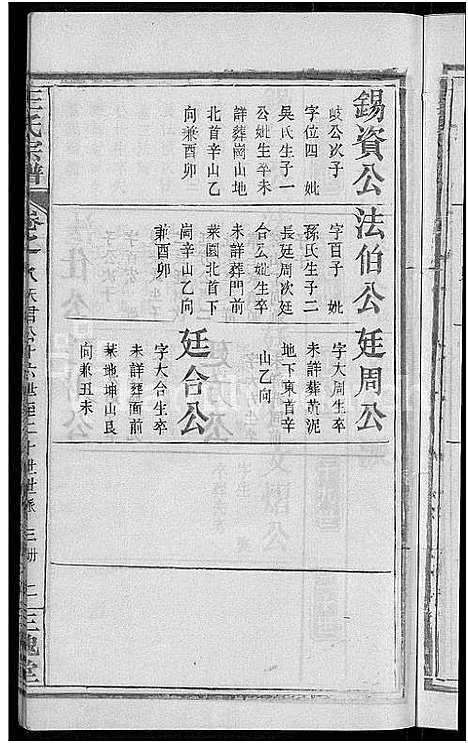 錫資公
岐公次子
字位四 妣
吳氏生子一
公妣生卒未
詳葬崗山地
北首辛山乙
向兼酉卯
法伯公
字百子 妣
孫氏生子二
長廷周次廷
合公妣生卒
未詳葬門前
菜園北首下
崗辛山乙向
兼酉卯
廷周公
字大周生卒
未詳葬黄泥
地下東首辛
山乙向
廷合公
字大合生卒
未詳葬面前
菉地坤山艮
向兼丑未
王氏宗譜
卷之一
公十六世至二十世世派
三册
二
三槐堂